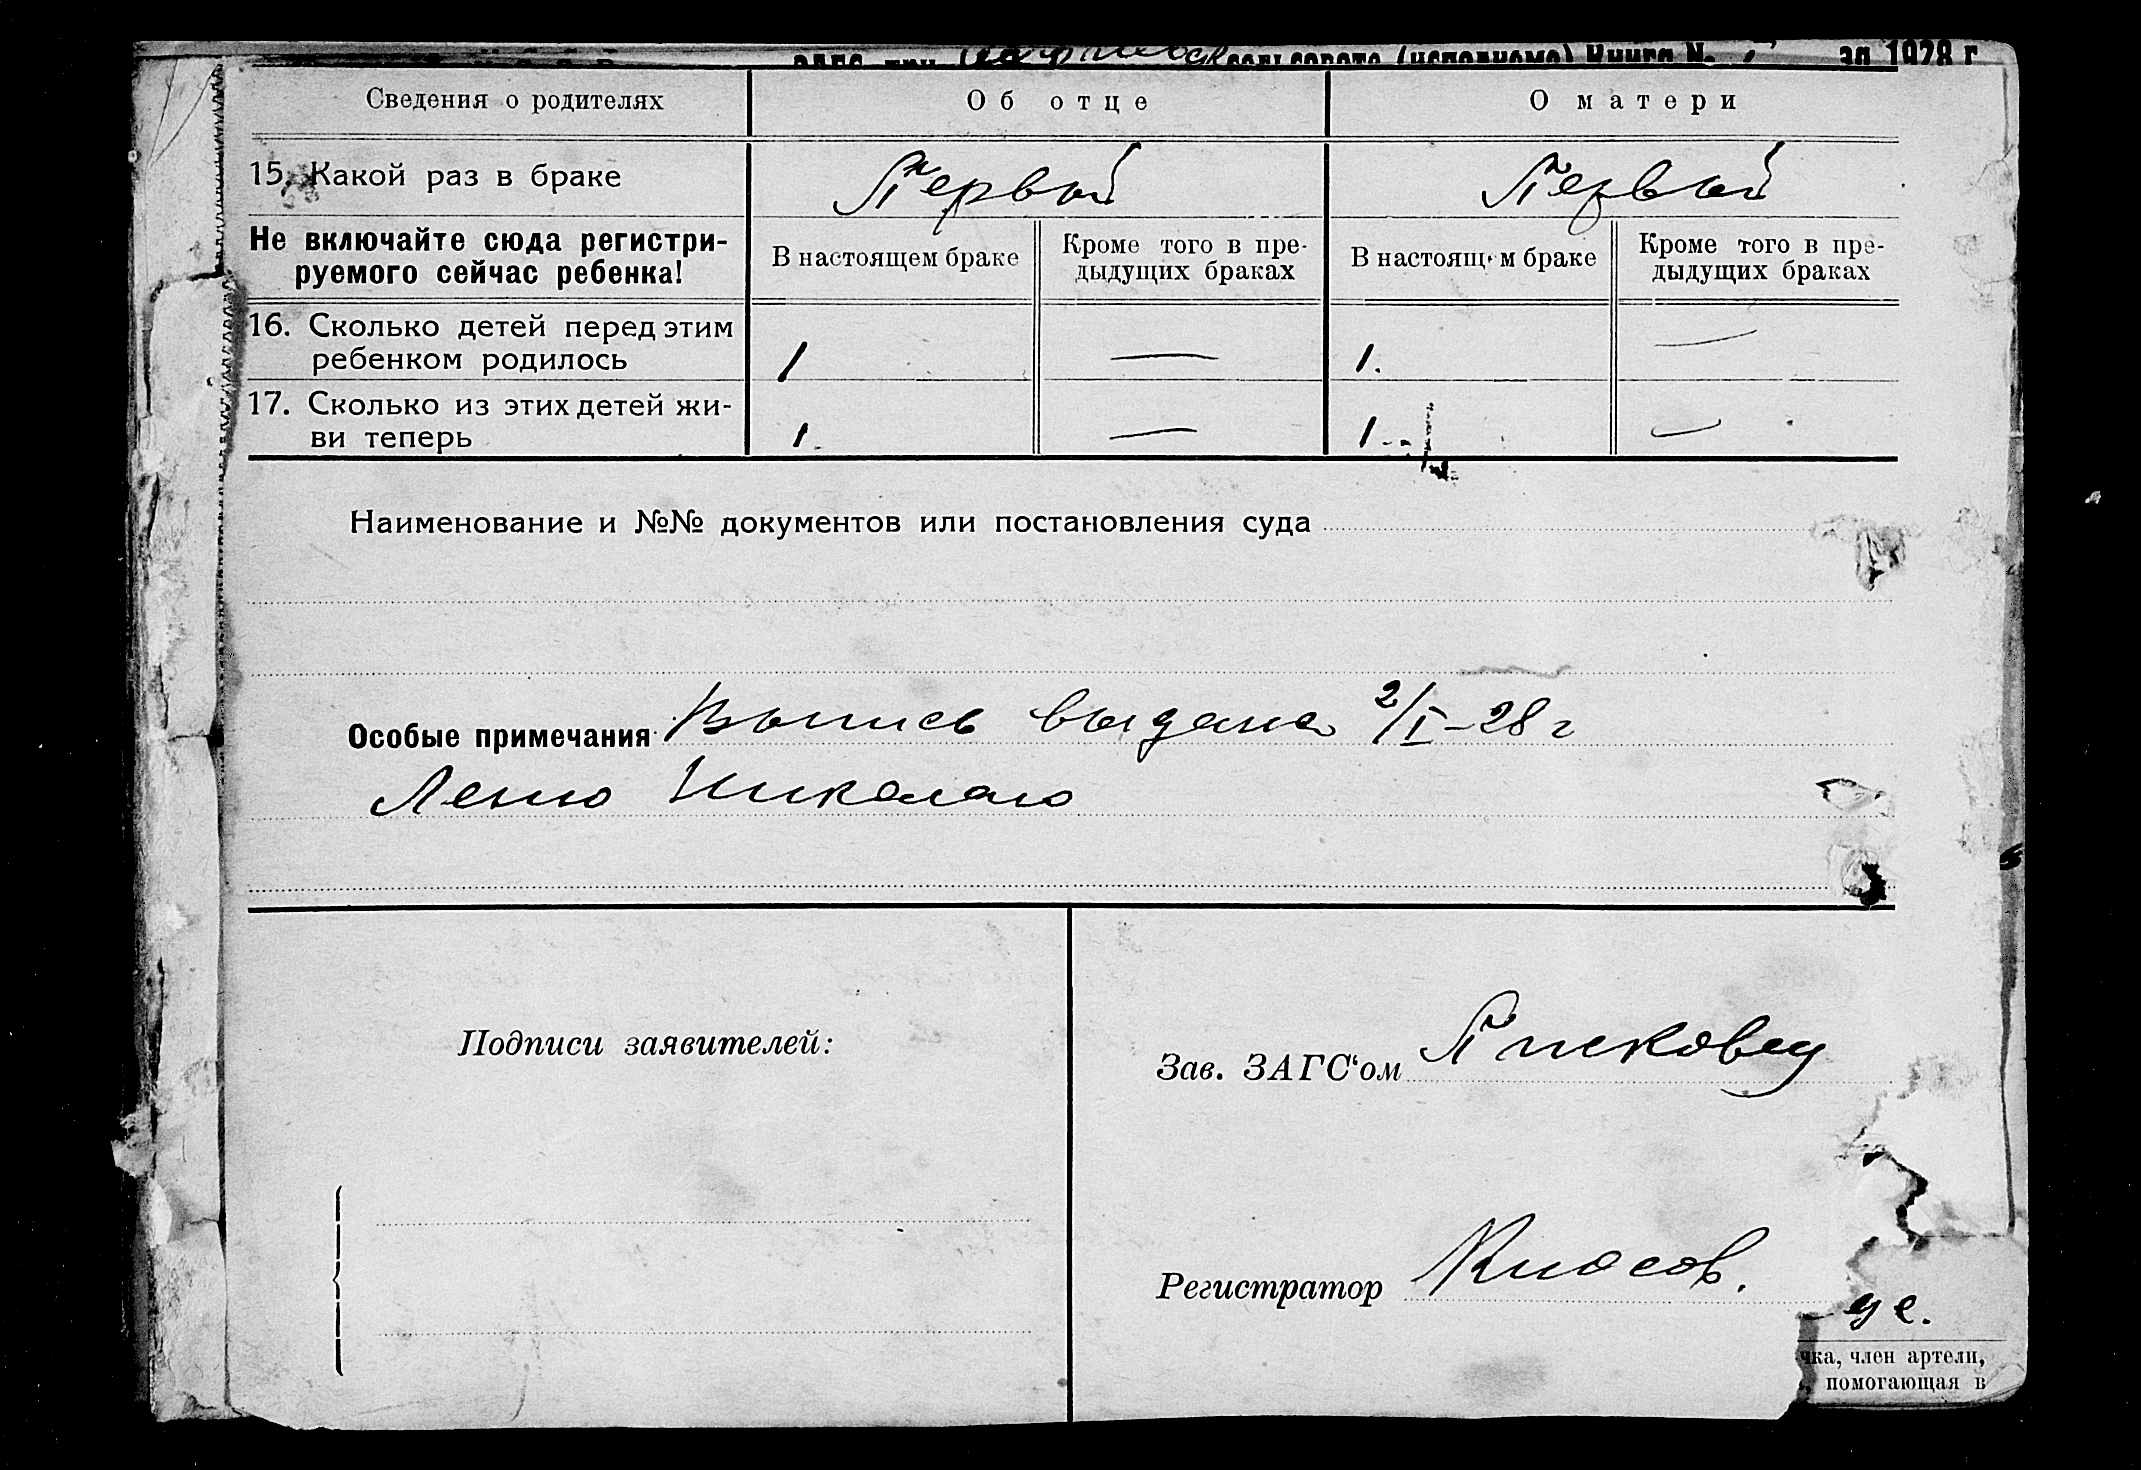 за 1928 г.
Сведения о родителях
Об отце
О матери
15. Какой раз в браке
Первый
Первый
Не включайте сюда регистри-
руемого сейчас ребенка!
В настоящем браке
Кроме того в пре-
дыдущих браках
В настоящем браке
Кроме того в пре-
дыдущих браках
16. Сколько детей перед этим
ребенком родилось
1
—
1.
—
17. Сколько из этих детей жи-
ви теперь
1.
—
1.
—
Наименование и №№ документов или постановления суда
Особые примечания Выпись выдана 2/I–28 г
Николаю
Подписи заявителей:
Зав. ЗАГС‘ом
Регистратор
чка, член артели,
помогающая в